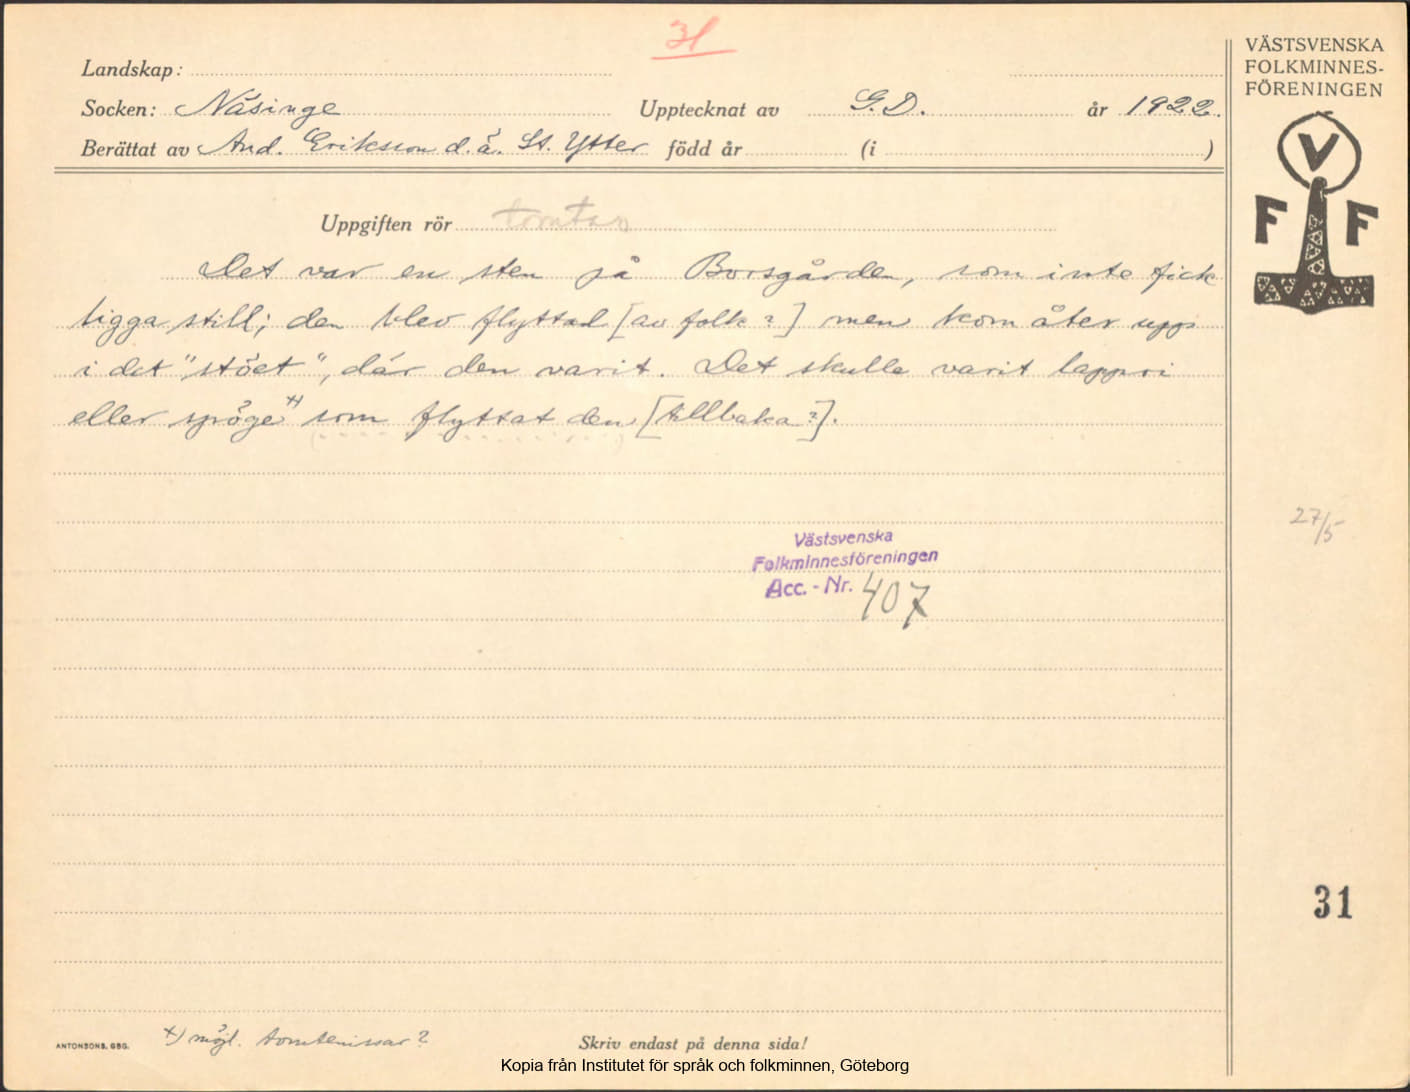 31
VÄSTSVENSKA
FOLKMINNES-
FÖRENINGEN
Landskap:
Socken: Näsinge Upptecknat av G. D. år 1922.
Berättat av And. Eriksson d.ä. St. Ytter född år (i )
V
F F
Uppgiften rör tomtar
Det var en sten på Borsgården, som inte fick
ligga still; den blev flyttad [av folk?] men kom åter upp
i det "stöet", där den varit. Det skulle varit lappri
eller spöge x) som flyttat den [tillbaka?].
27/5
Västsvenska
Folkminnesföreningen
Acc. - Nr. 407
31
x) möjl. tomtenissar?
ANTONSONS, GBG.
Skriv endast på denna sida!
Kopia från Institutet för språk och folkminnen, Göteborg